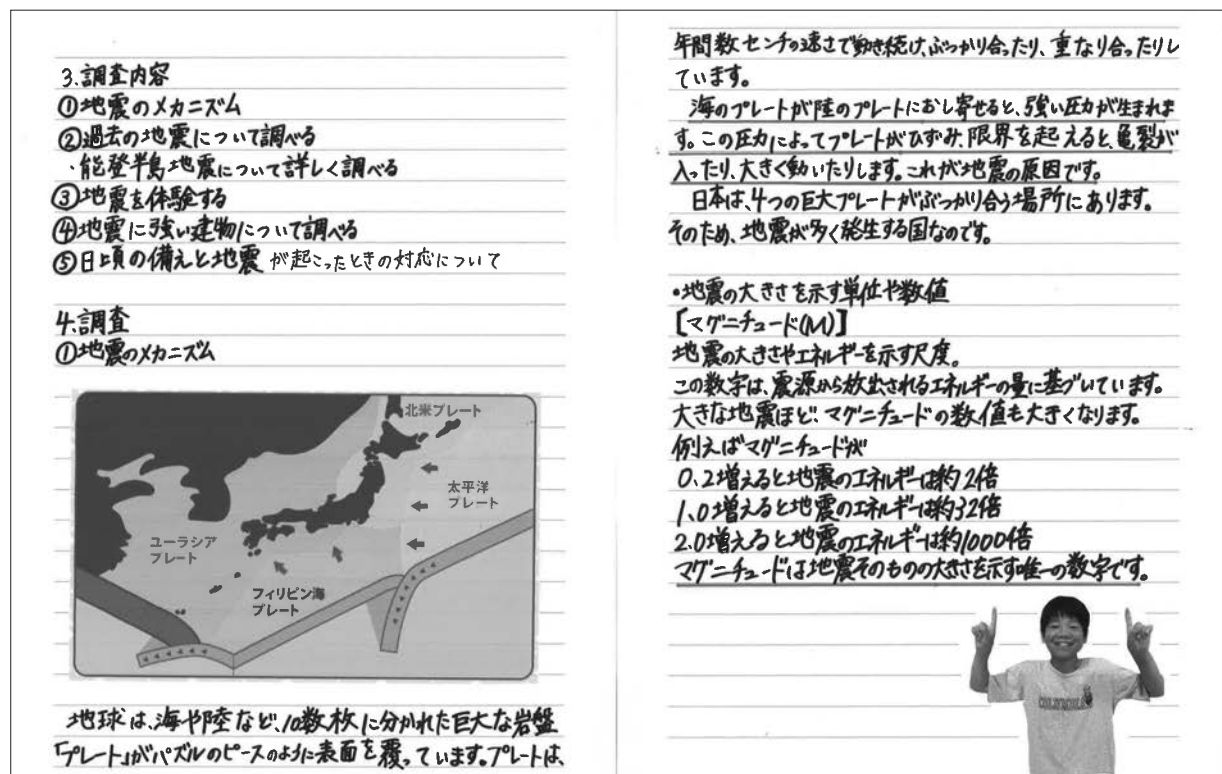 3.調査内容
①地震のメカニズム
②過去の地震について調べる
・能登半島地震について詳しく調べる
③地震を体験する
④地震に強い建物について調べる
⑤日頃の備えと地震が起こったときの対応について
4.調査
①地震のメカニズム
北米プレート
太平洋
プレート
ユーラシア
プレート
フィリピン海
プレート
地球は、海や陸など、10数枚に分かれた巨大な岩盤
「プレート」がパズルのピースのように表面を覆っています。プレートは、
年間数センチの速さで動き続け、ぶつかり合ったり、重なり合ったりし
ています。
海のプレートが陸のプレートにおし寄せると、強い圧力が生まれま
す。この圧力によってプレートがひずみ、限界を起えると、亀裂が
入ったり、大きく動いたりします。これが地震の原因です。
日本は、4つの巨大プレートがぶつかり合う場所にあります。
そのため、地震が多く発生する国なのです。
・地震の大きさを示す単位や数値
[マグニチュード(M)]
地震の大きさやエネルギーを示す尺度。
この数字は、震源から放出されるエネルギーの量に基づいています。
大きな地震ほど、マグニチュードの数値も大きくなります。
例えばマグニチュードが
0.2増えると地震のエネルギーは約2倍
1.0増えると地震のエネルギーは約32倍
2.0増えると地震のエネルギーは約1000倍
マグニチュードは地震そのものの大きさを示す唯一の数字です。